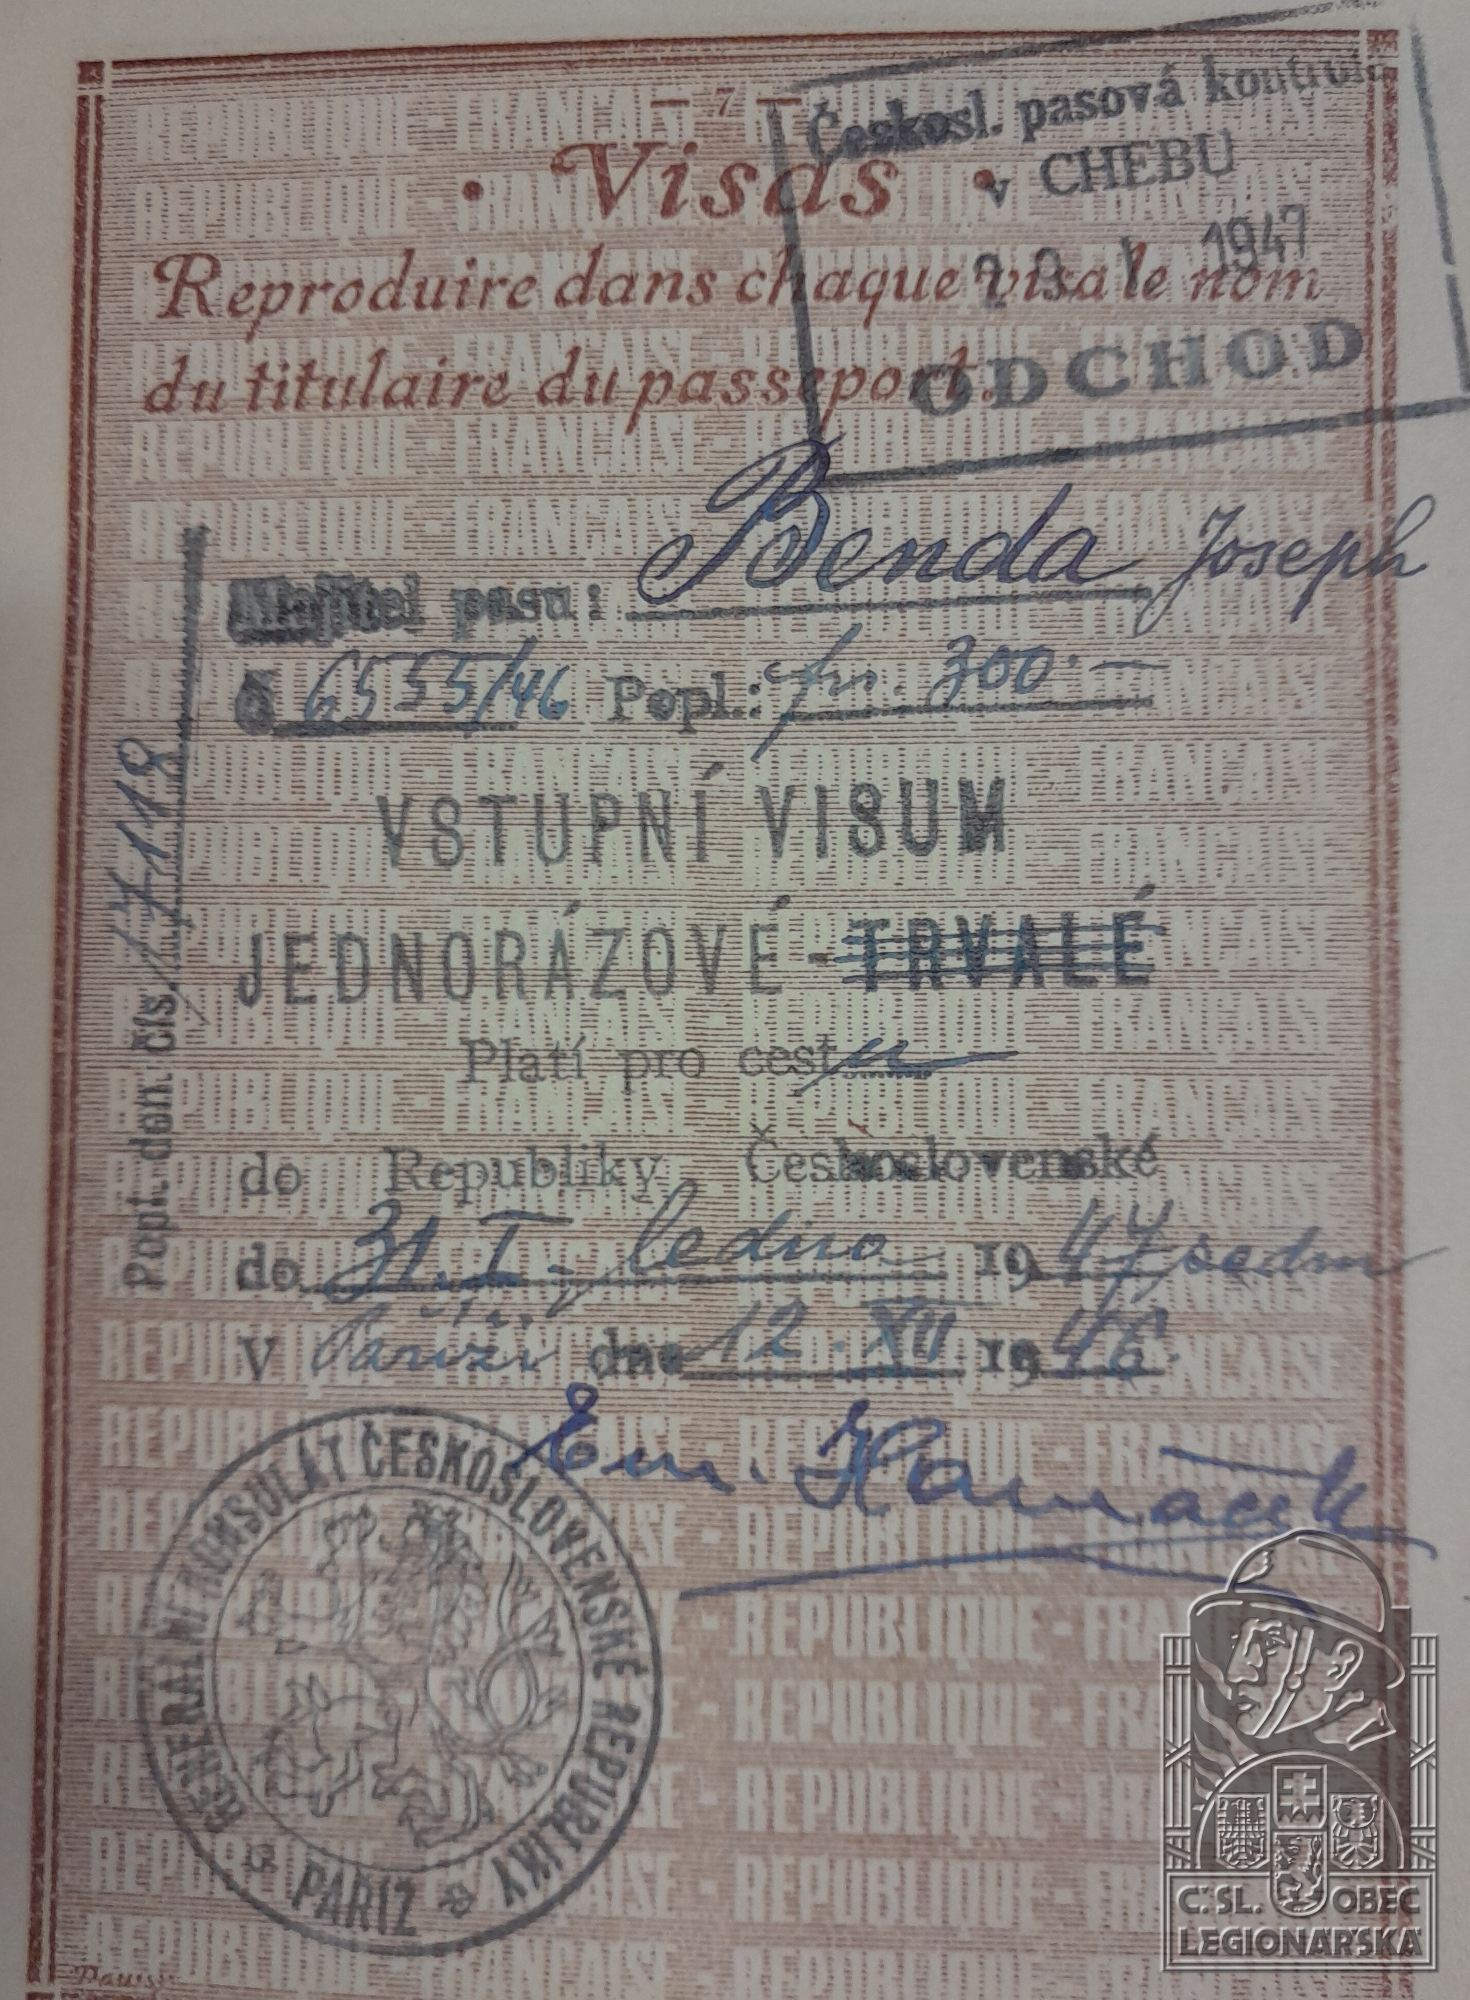 — 7 —
· Visas ·
Reproduire dans chaque visa le nom
du titulaire du passeport.
Českosl. pasová kontrola
v CHEBU
1947
ODCHOD
Majitel pasu: Benda Joseph
Č 6555/46 Popl.: frs. 300.—
VSTUPNÍ VISUM
JEDNORÁZOVÉ - TRVALÉ
Platí pro cestu
do Republiky Československé
do 31. I. ledna 1947 sedm
V Paříži dne 12. XII 1946.
Popl. den. čís. 17118
GENERÁLNÍ KONSULÁT ČESKOSLOVENSKÉ REPUBLIKY
PAŘÍŽ
Č.SL. OBEC
LEGIONÁŘSKÁ